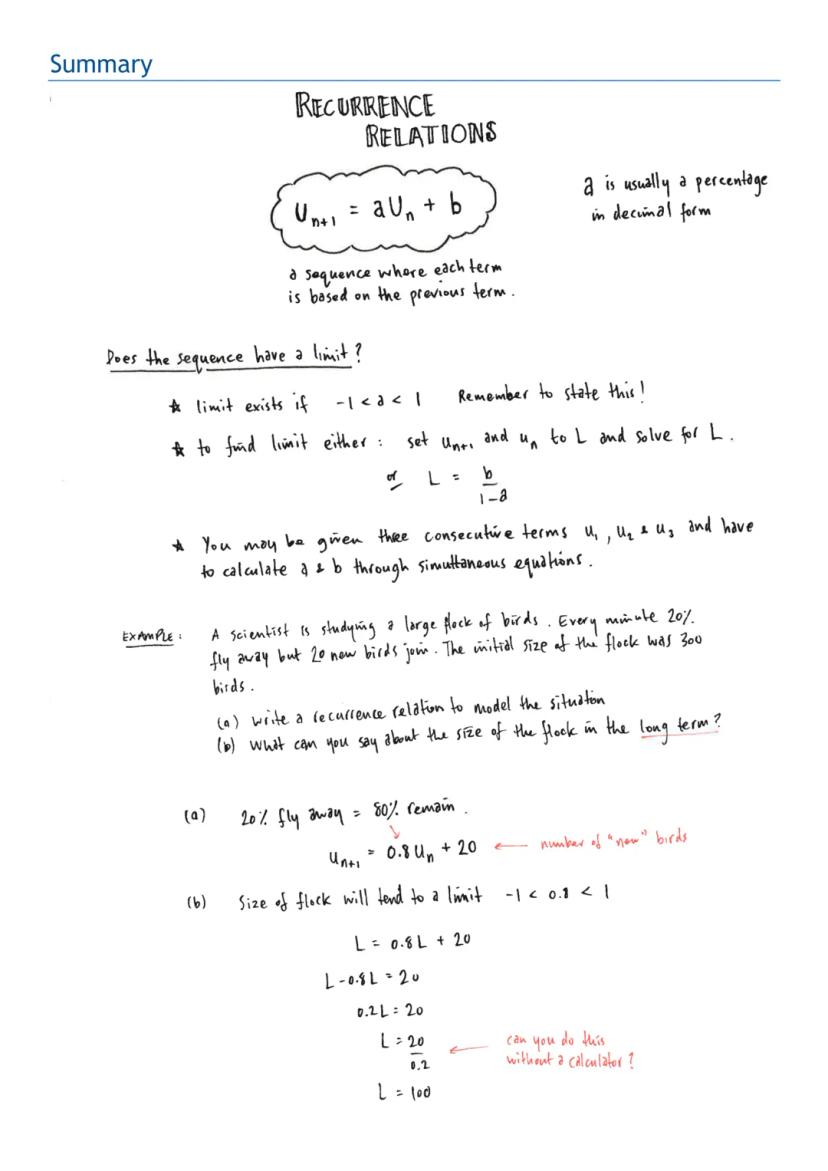 Summary
RECURRENCE
RELATIONS
Uₙ₊₁ = aUₙ + b
a is usually a percentage
in decimal form
a sequence where each term
is based on the previous term.
Does the sequence have a limit?
★ limit exists if -1 < a < 1 Remember to state this!
★ to find limit either : set uₙ₊₁ and uₙ to L and solve for L.
or L = b
1-a
★ You may be given three consecutive terms u₁, u₂ & u₃ and have
to calculate a & b through simultaneous equations.
EXAMPLE: A scientist is studying a large flock of birds. Every minute 20%
fly away but 20 new birds join. The initial size of the flock was 300
birds.
(a) Write a recurrence relation to model the situation
(b) What can you say about the size of the flock in the long term?
(a) 20% fly away = 80% remain.
Uₙ₊₁ = 0.8Uₙ + 20 ← number of "new" birds
(b) Size of flock will tend to a limit -1 < 0.8 < 1
L = 0.8L + 20
L-0.8L = 20
0.2L = 20
L = 20
0.2
← can you do this
without a calculator?
L = 100